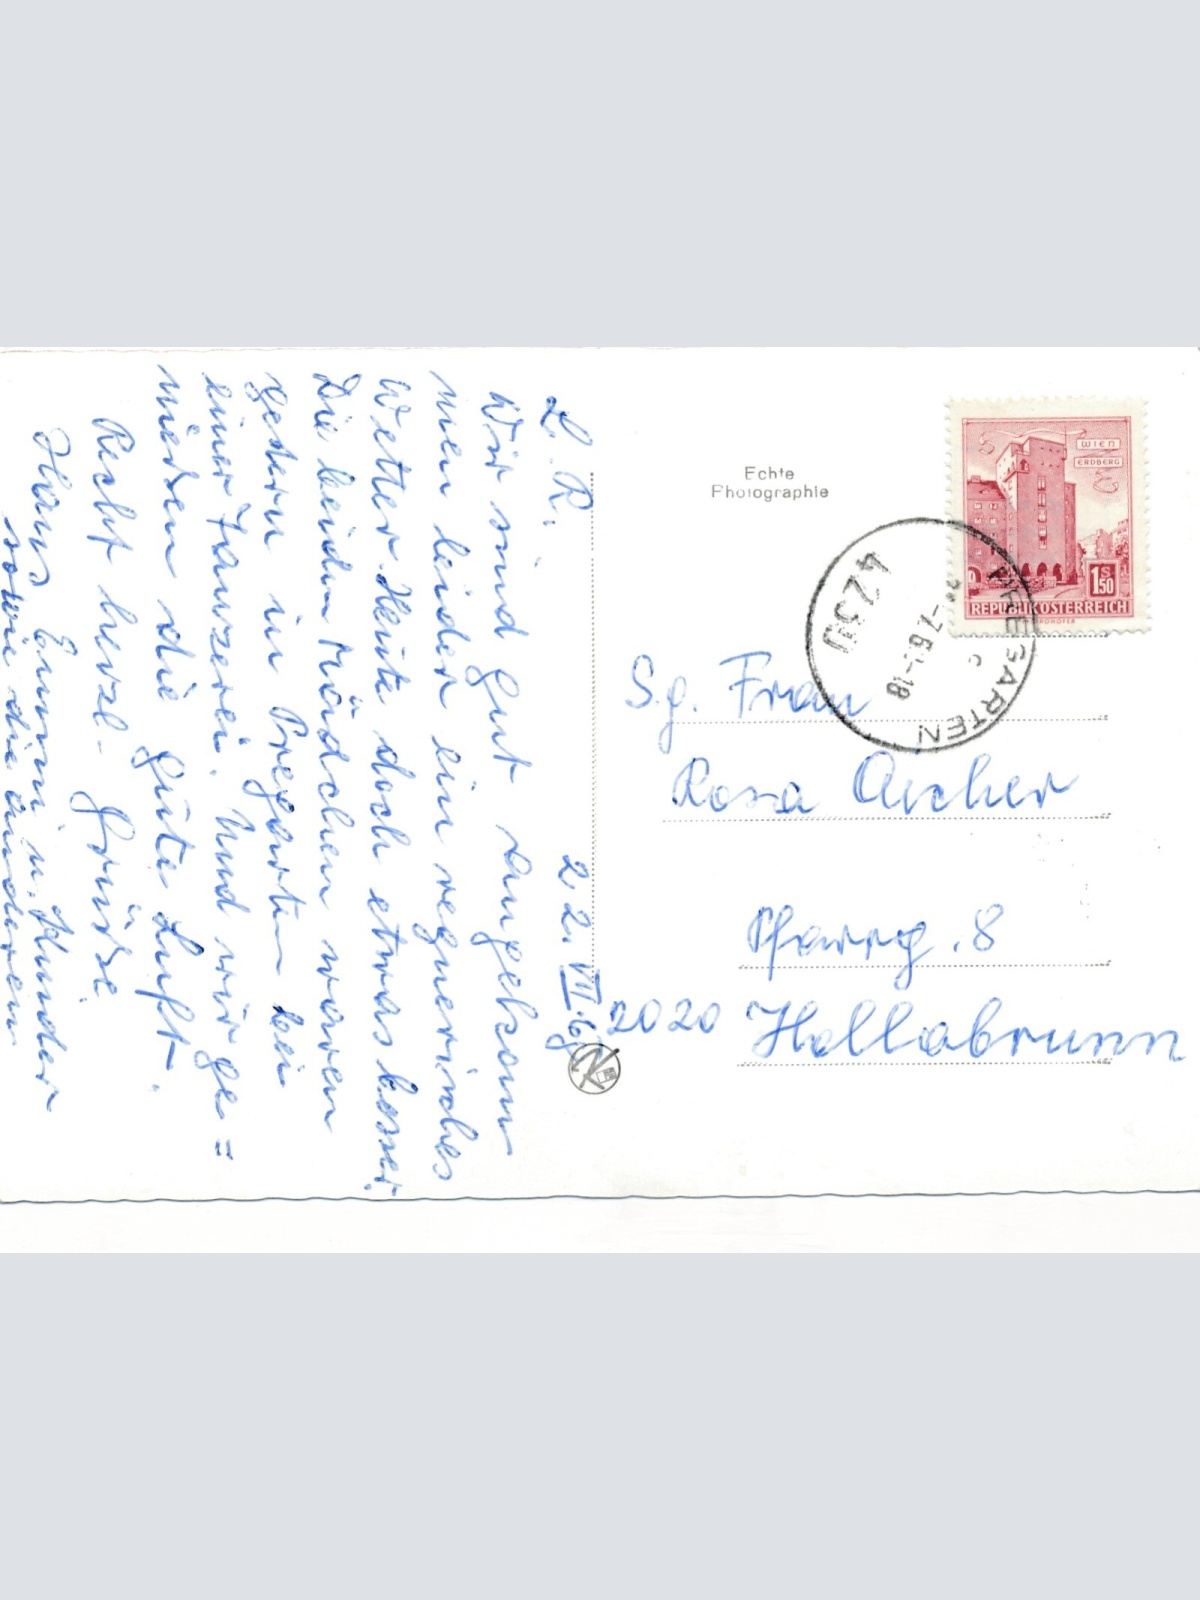 L. R. 22. VII. 69
Wir sind gut angekom
men leider ein regnerisches
Wetter. Heute doch etwas besser.
Die beiden Mädchen waren
gestern in Pregarten bei
einer Tanzerei. Und wir ge=
nießen die gute Luft.
Recht herzl. Grüße
Hans Emmi u. Kinder
sowie die anderen
Echte
Photographie
WIEN
ERDBERG
1 S 50
REPUBLIK ÖSTERREICH
PREGARTEN
4230
S.g. Frau
Rosa Aicher
Pfarrg. 8
2020 Hollabrunn